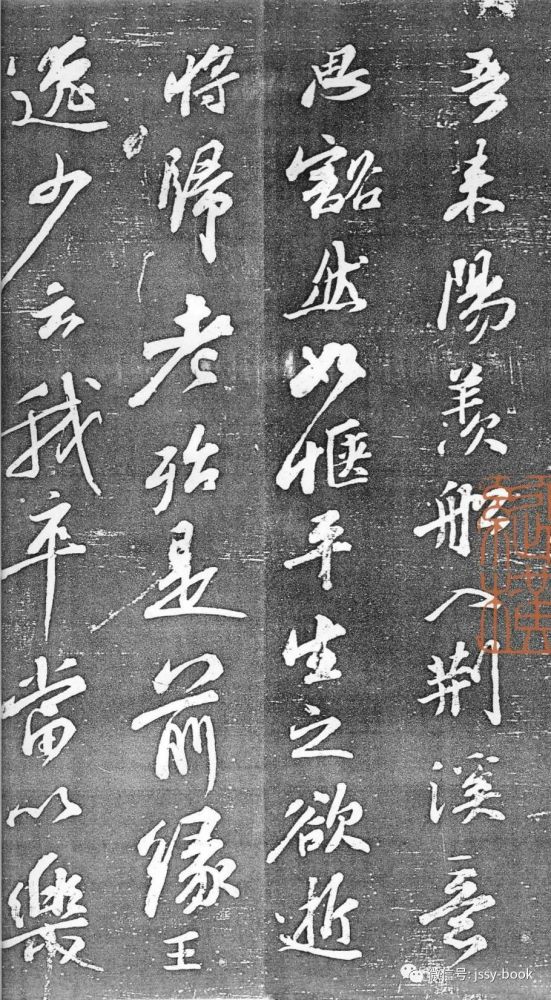 吾来陽羨船入荆溪意
思豁然如愜平生之欲逝
将歸老殆是前縁王
逸少云我卒當以樂
微信号: jssy-book